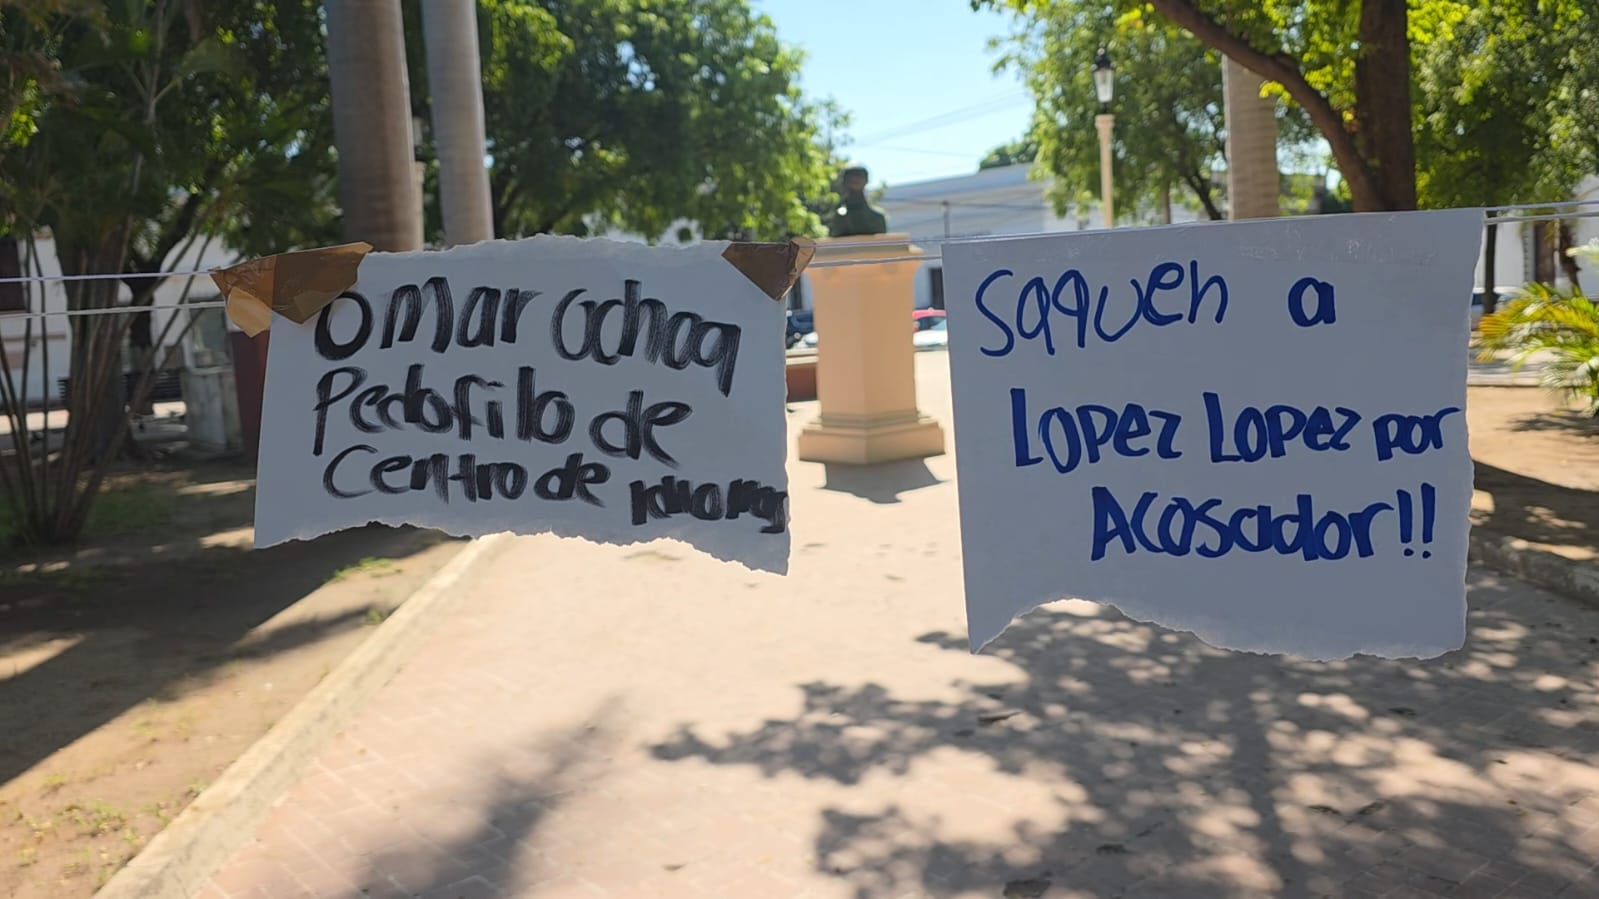 Omar Ochoa
Pedofilo de
Centro de Idiomas
Saquen a
Lopez Lopez por
Acosador!!